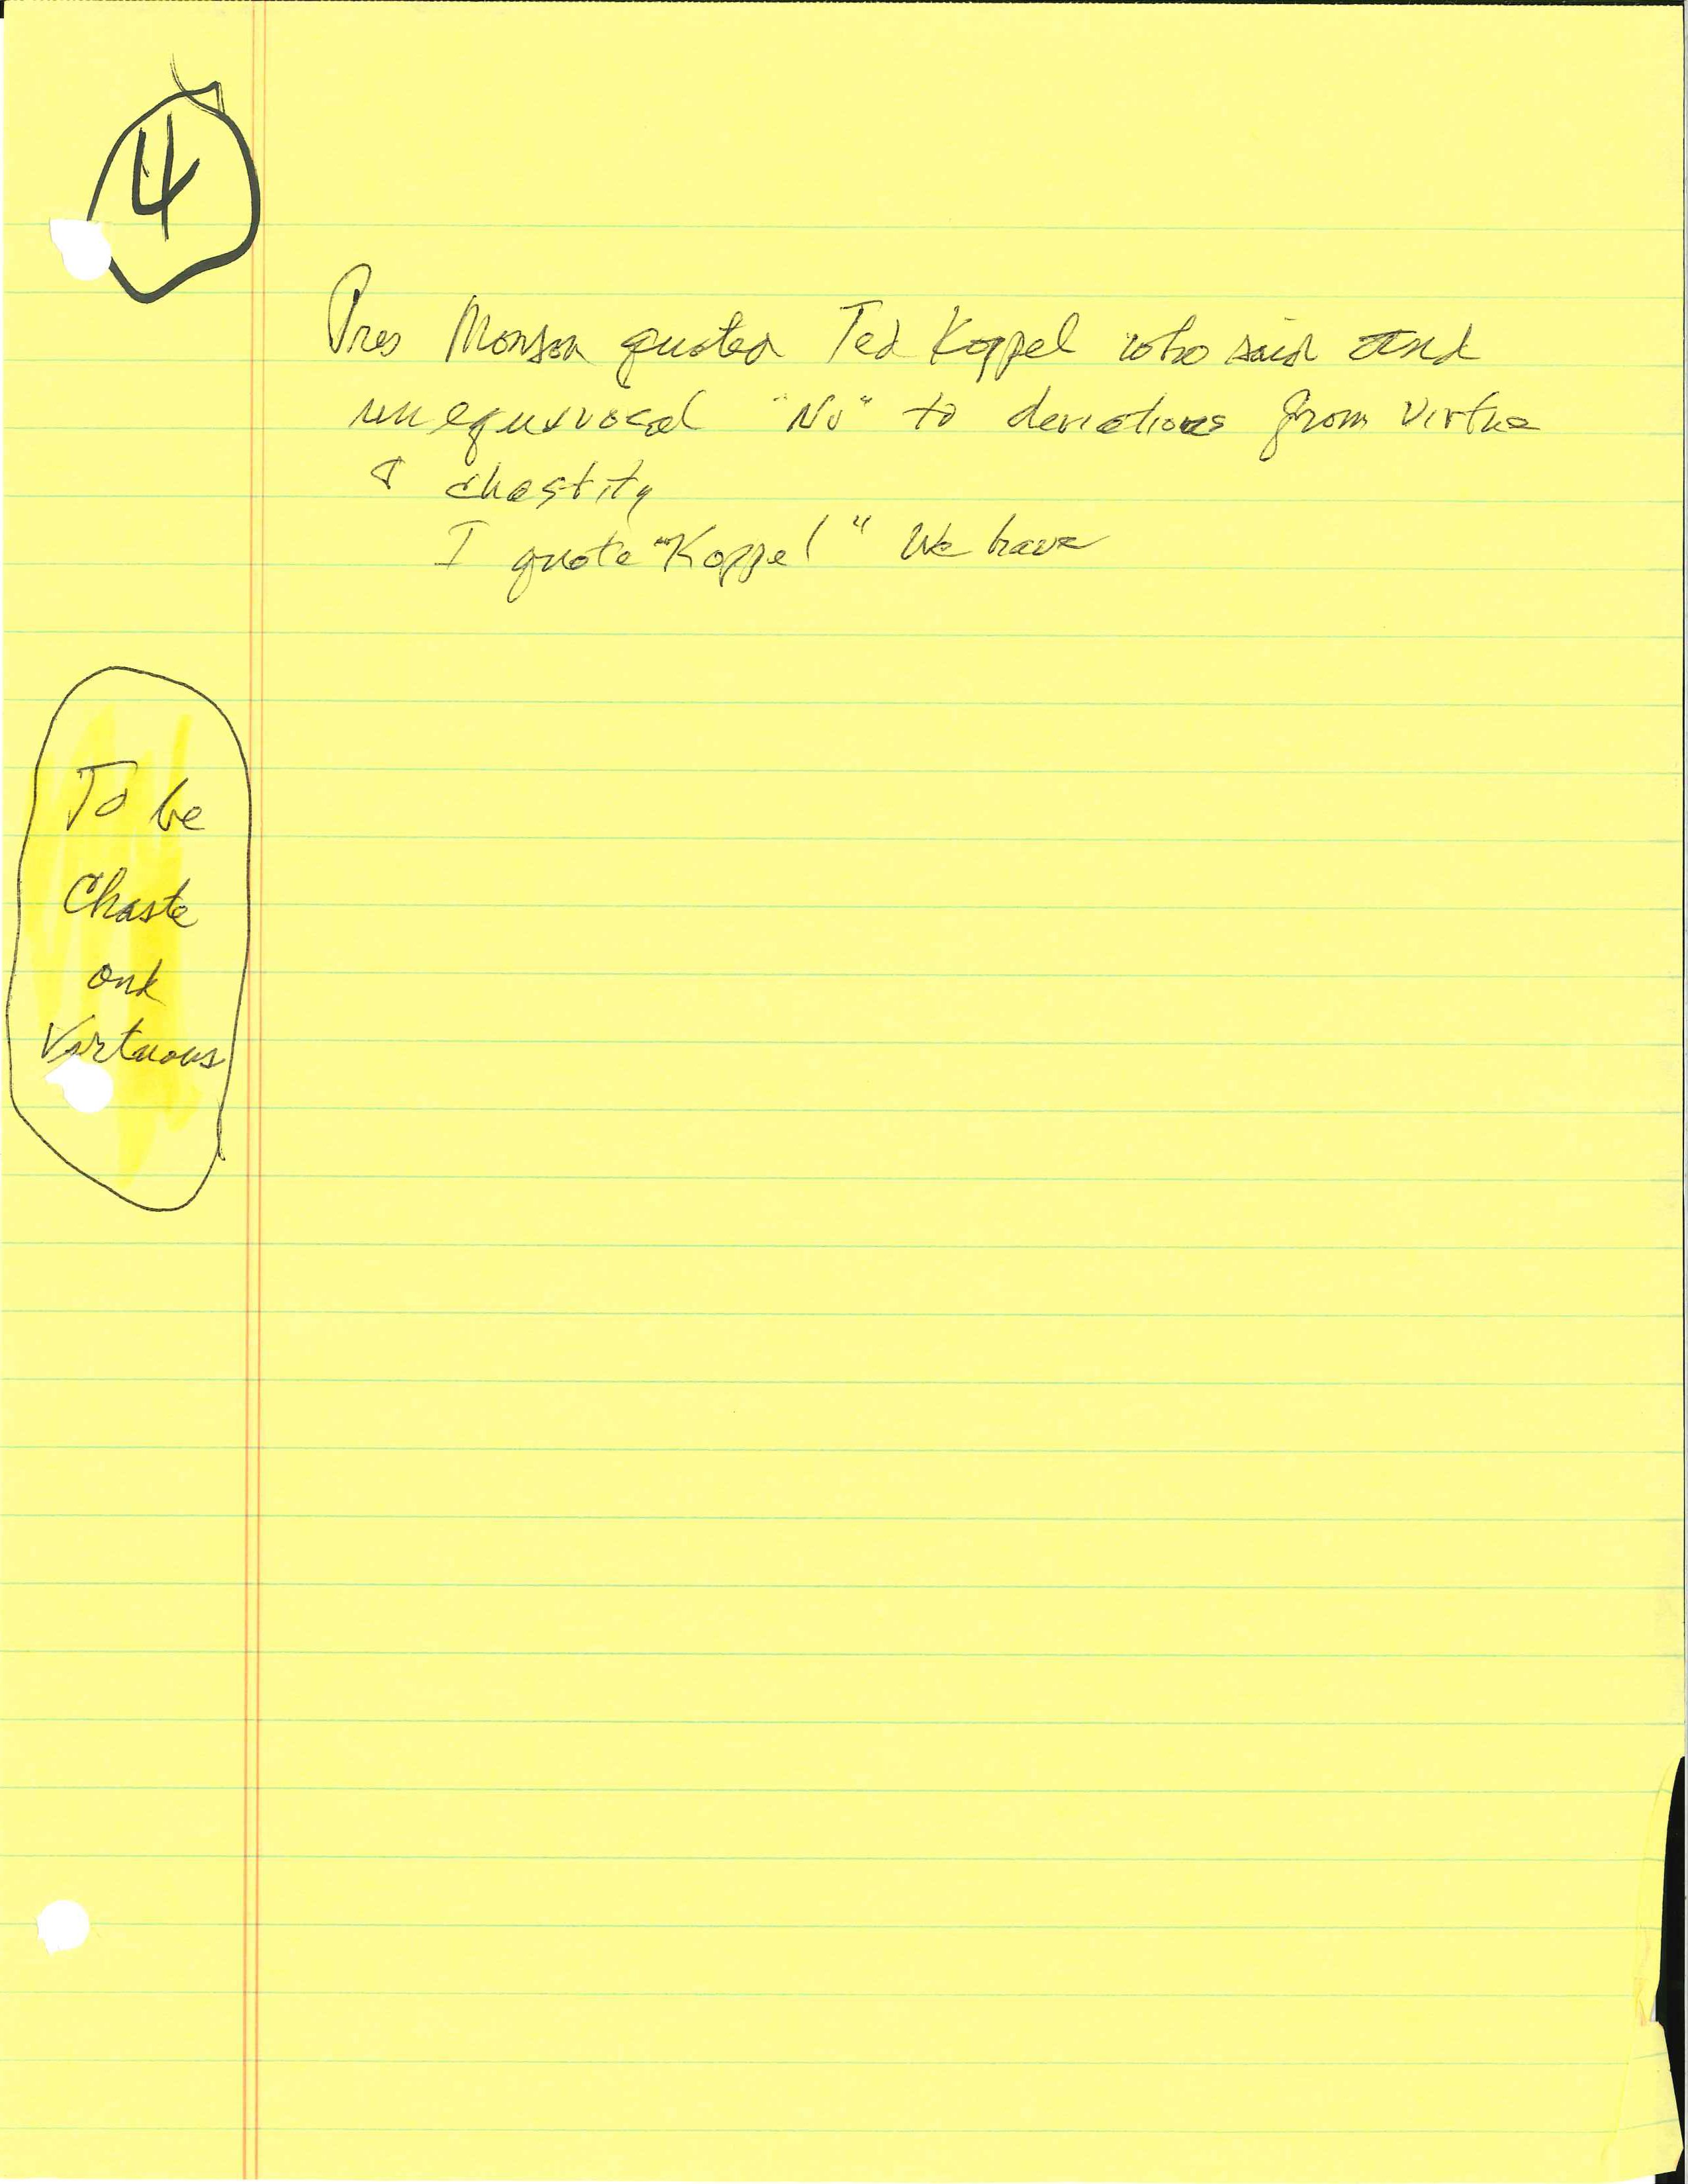 4
Pres Monson quoted Ted Koppel who said and
unequivocal "No" to deviations from virtue
& chastity
I quote "Koppel" We have
To be
Chaste
and
Virtuous